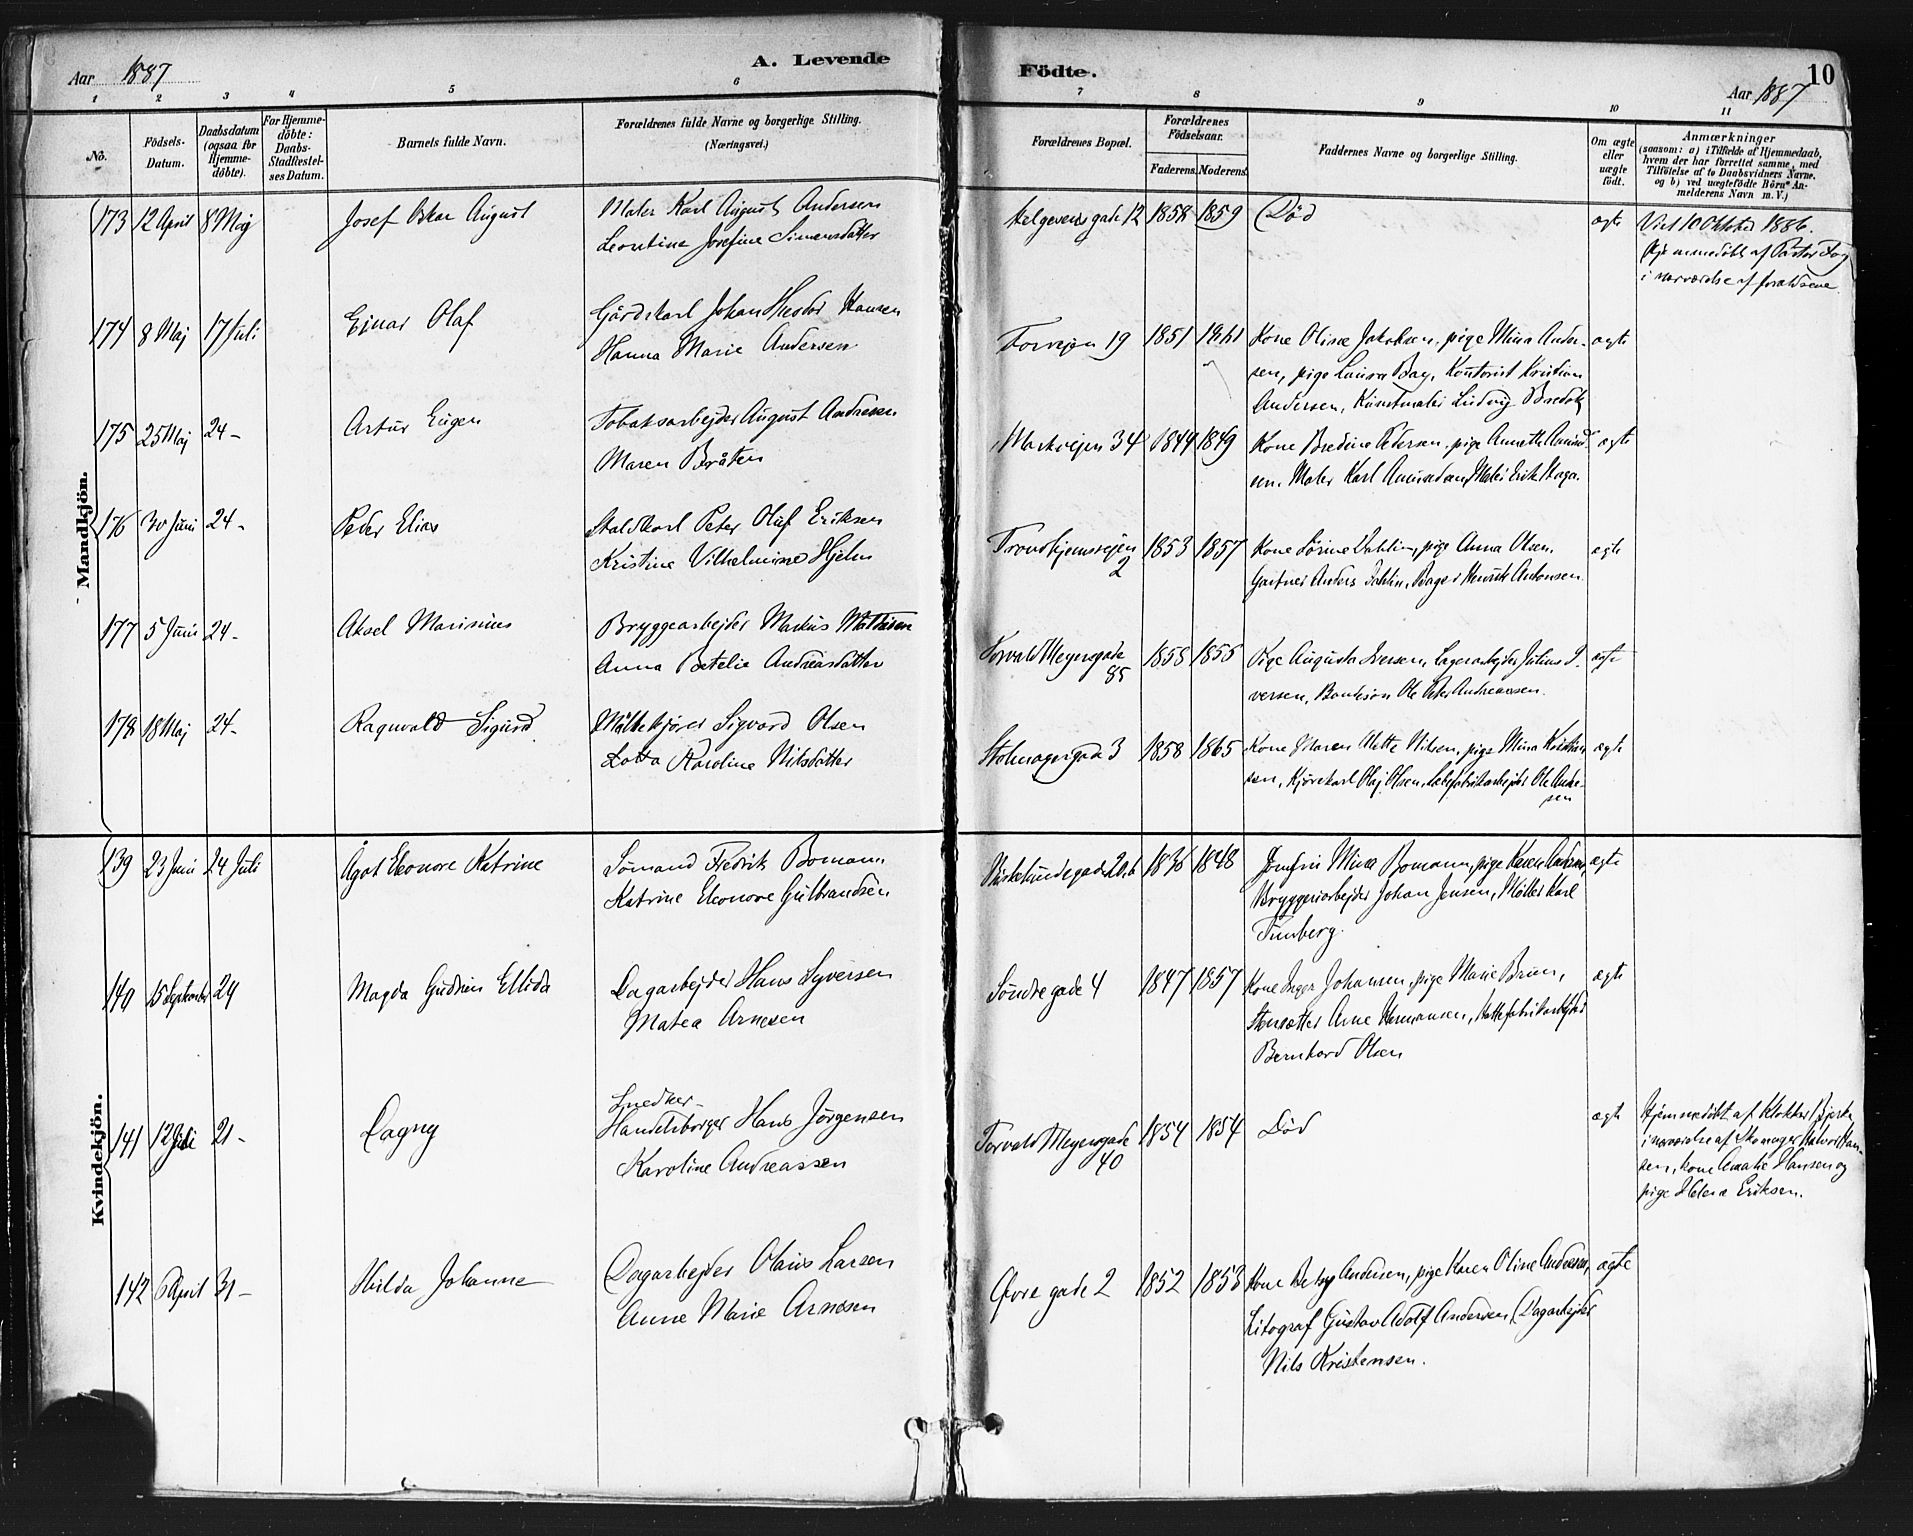 Aar 1887
A. Levende
Födte.
10
Aar 1887
1 2 3 4 5 6 7 8 9 10 11
No.
Födsels-Datum.
Daabsdatum (ogsaa for Hjemme-döbte).
For Hjemme-döbte: Daabs-Stadfæstel-ses Datum.
Barnets fulde Navn.
Forældrenes fulde Navne og borgerlige Stilling. (Næringsvei.)
Forældrenes Bopæl.
Forældrenes Födselsaar.
Faderens. Moderens.
Faddernes Navne og borgerlige Stilling.
Om ægte eller uægte födt.
Anmærkninger
(saasom: a) i Tilfælde af Hjemmedaab, hvem der har forrettet samme, med Tilföielse af to Daabsvidners Navne, og b) ved uægtefödte Börn: An-melderens Navn m. V.)
Mandkjön.
173 12 April 8 Maj Josef Oskar August Maler Karl August Andersen
Leontine Josefine Simensdatter
Helgesens gade 12 1858 1859 Død ægte Viet 10 Oktober 1886.
Hjemmedöbt af Pastor Fog
i nærværelse af forældrene
174 8 Maj 17 Juli Einar Olaf Gårdskarl Johan Theodor Hansen
Hanna Marie Andersen
Torvejen 19 1851 Kone Olise Jakobsen, pige Mina Ander-
sen, pige Laura Bay, Kontorist Kristian
Andersen, Kunstmaler Ludvig
ægte
175 25 Maj 24 - Artur Eugen Tobaksarbejder August Andresen
Maren Bråten
Markvejen 34 1844 1849 Kone Bredine Pedersen, pige Annette Amund-
sen, Maler Karl Amundsen, Maler Erik Haga.
ægte
176 30 Juni 24 - Peder Elias Staldkarl Peter Oluf Eriksen
Kristine Vilhelmine Hjelm
Trondhjemsvejen 2 1853 1857 Kone Sörine Dahlin, pige Anna Olsen,
Gartner Anders Dahlin, Bager Henrik Antonsen.
ægte
177 5 Juni 24 - Aksel Marinius Bryggearbejder Markus Mathisen
Anna Petelie Andreasdatter
Torvald Meyersgade 85 1858 1855 Pige Augusta Iversen, Lagerarbejder Julius I-
versen, Ole Peter Andreassen.
ægte
178 18 Maj 24 - Ragnvald Sigurd Mælkekjører Sigvard Olsen
Lotta Karoline Nilsdatter
Stolmagergade 3 1858 1865 Kone Maren Alette Nilsen, pige Mina Kristian-
sen, Kjørekarl Olaf Olsen, Sæbefabrikarbejder Ole Andre-
sen
ægte
Kvindekjön.
139 23 Juni 24 Juli Ågot Eleonore Katrine Sömand Fredrik Bomann
Katrine Eleonore Gulbrandsen
1836 1848 Jomfru Mina Bomann, pige Karen Andersen,
Bryggeriarbejder Johan Jensen, Møller Karl
Tunberg.
ægte
140 15 September 24 Magda Gudrun Ellida Dagarbejder Hans Syversen
Matea Arnesen
Søndre gade 4 1847 1857 Kone Inger Johansen, pige Marie Bruun,
Stensætter Arne Hermansen, Hattefabrikarbejder
Bernhard Olsen
ægte
141 12 Juli 21 - Dagny Snedker-
Handelsborger Hans Jørgensen
Karoline Andreassen
Torvald Meyersgade 40 1854 1854 Død ægte
Hjemmedöbt af Klokker Bjerke
i nærværelse af Skomager Halvor Han-
sen, kone Amalie Hansen og
pige Helene Eriksen.
142 6 April 31 - Hilda Johanne Dagarbejder Olaus Larsen
Anne Marie Arnesen
Øvre gade 2 1852 1853 Kone Betsy Andersen, pige Karen Oline Andersen,
Litograf Gustav Adolf Andersen, Dagarbejder
Nils Kristensen.
ægte